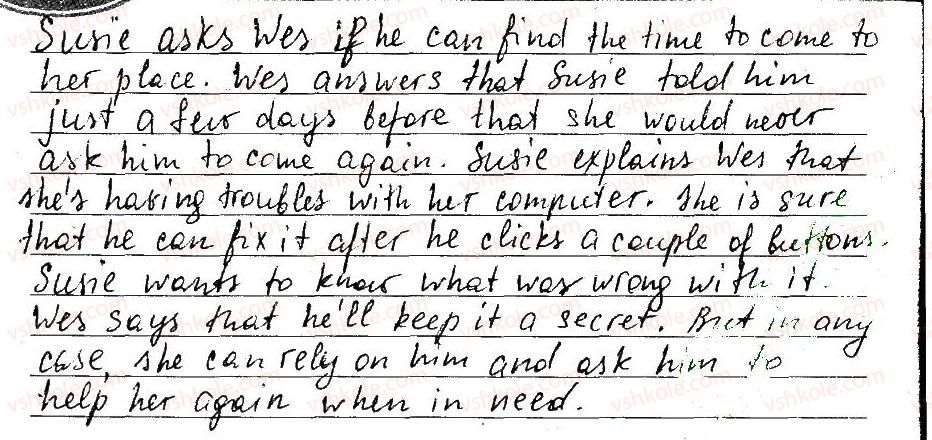 Susie asks Wes if he can find the time to come to
her place. Wes answers that Susie told him
just a few days before that she would never
ask him to come again. Susie explains Wes that
she's having troubles with her computer. She is sure
that he can fix it after he clicks a couple of buttons.
Susie wants to know what was wrong with it.
Wes says that he'll keep it a secret. But in any
case, she can rely on him and ask him to
help her again when in need.